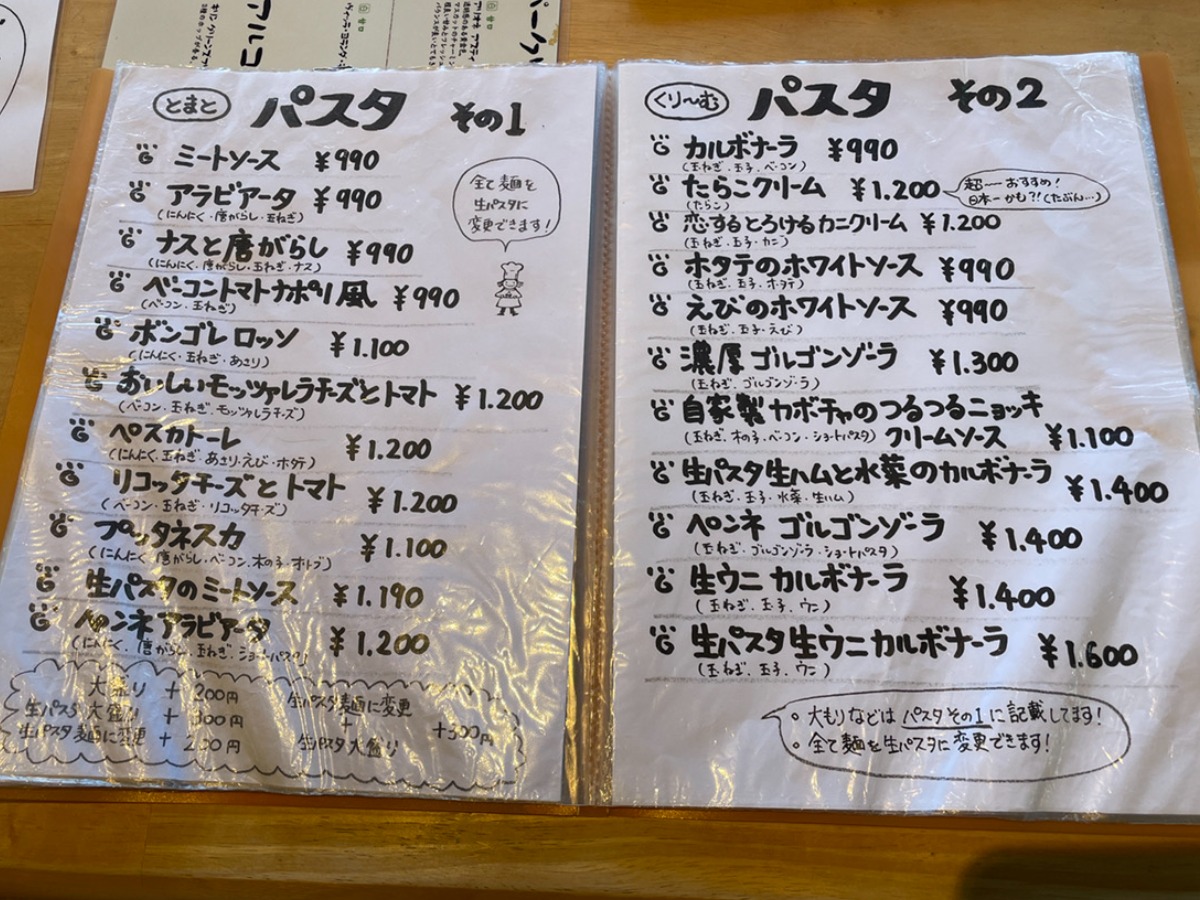 とまと パスタ その1
ミートソース ¥990
アラビアータ ¥990
(にんにく・唐がらし・玉ねぎ)
ナスと唐がらし ¥990
(にんにく・唐がらし・玉ねぎ・ナス)
ベーコントマトナポリ風 ¥990
(ベーコン・玉ねぎ)
ボンゴレロッソ ¥1.100
(にんにく・玉ねぎ・あさり)
おいしいモッツァレラチーズとトマト ¥1.200
(ベーコン・玉ねぎ・モッツァレラチーズ)
ペスカトーレ ¥1.200
(にんにく・玉ねぎ・あさり・えび・ホタテ)
リコッタチーズとトマト ¥1.200
(ベーコン・玉ねぎ・リコッタチーズ)
プッタネスカ ¥1.100
(にんにく・唐がらし・ベーコン・木の子・オリーブ)
生パスタのミートソース ¥1.190
ペンネアラビアータ ¥1.200
(にんにく・唐がらし・玉ねぎ・ショートパスタ)
全て麺を
生パスタに
変更できます!
大盛り + 200円
生パスタ大盛り + 300円
生パスタ麺に変更 + 200円
生パスタ麺に変更
+
生パスタ大盛り
+500円
くり〜む パスタ その2
カルボナーラ ¥990
(玉ねぎ・玉子・ベーコン)
たらこクリーム ¥1.200
(たらこ)
超一おすすめ!
日本一かも?!(たぶん…)
恋するとろけるカニクリーム ¥1.200
(玉ねぎ・玉子・カニ)
ホタテのホワイトソース ¥990
(玉ねぎ・玉子・ホタテ)
えびのホワイトソース ¥990
(玉ねぎ・玉子・えび)
濃厚ゴルゴンゾーラ ¥1.300
(玉ねぎ・ゴルゴンゾーラ)
自家製カボチャのつるつるニョッキ
(玉ねぎ・木の子・ベーコン・ショートパスタ) クリームソース ¥1.100
生パスタ生ハムと水菜のカルボナーラ ¥1.400
(玉ねぎ・玉子・水菜・生ハム)
ペンネ ゴルゴンゾーラ ¥1.400
(玉ねぎ・ゴルゴンゾーラ・ショートパスタ)
生ウニカルボナーラ ¥1.400
(玉ねぎ・玉子・ウニ)
生パスタ生ウニカルボナーラ ¥1.600
(玉ねぎ・玉子・ウニ)
。大もりなどはパスタその1に記載してます!
。全て麺を生パスタに変更できます!